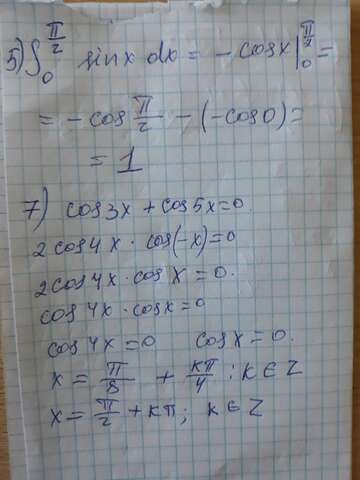 5) ∫₀^(π/2) sinx dx = - cosx |₀^(π/2) =
= - cos π/2 - (-cos0) =
= 1
7) cos3x + cos5x=0
2cos4x · cos(-x)=0
2cos4x · cosx = 0.
cos4x · cosx = 0
cos4x = 0 cosx = 0.
x = π/8 + kπ/4 ; k ∈ Z
x = π/2 + kπ; k ∈ Z